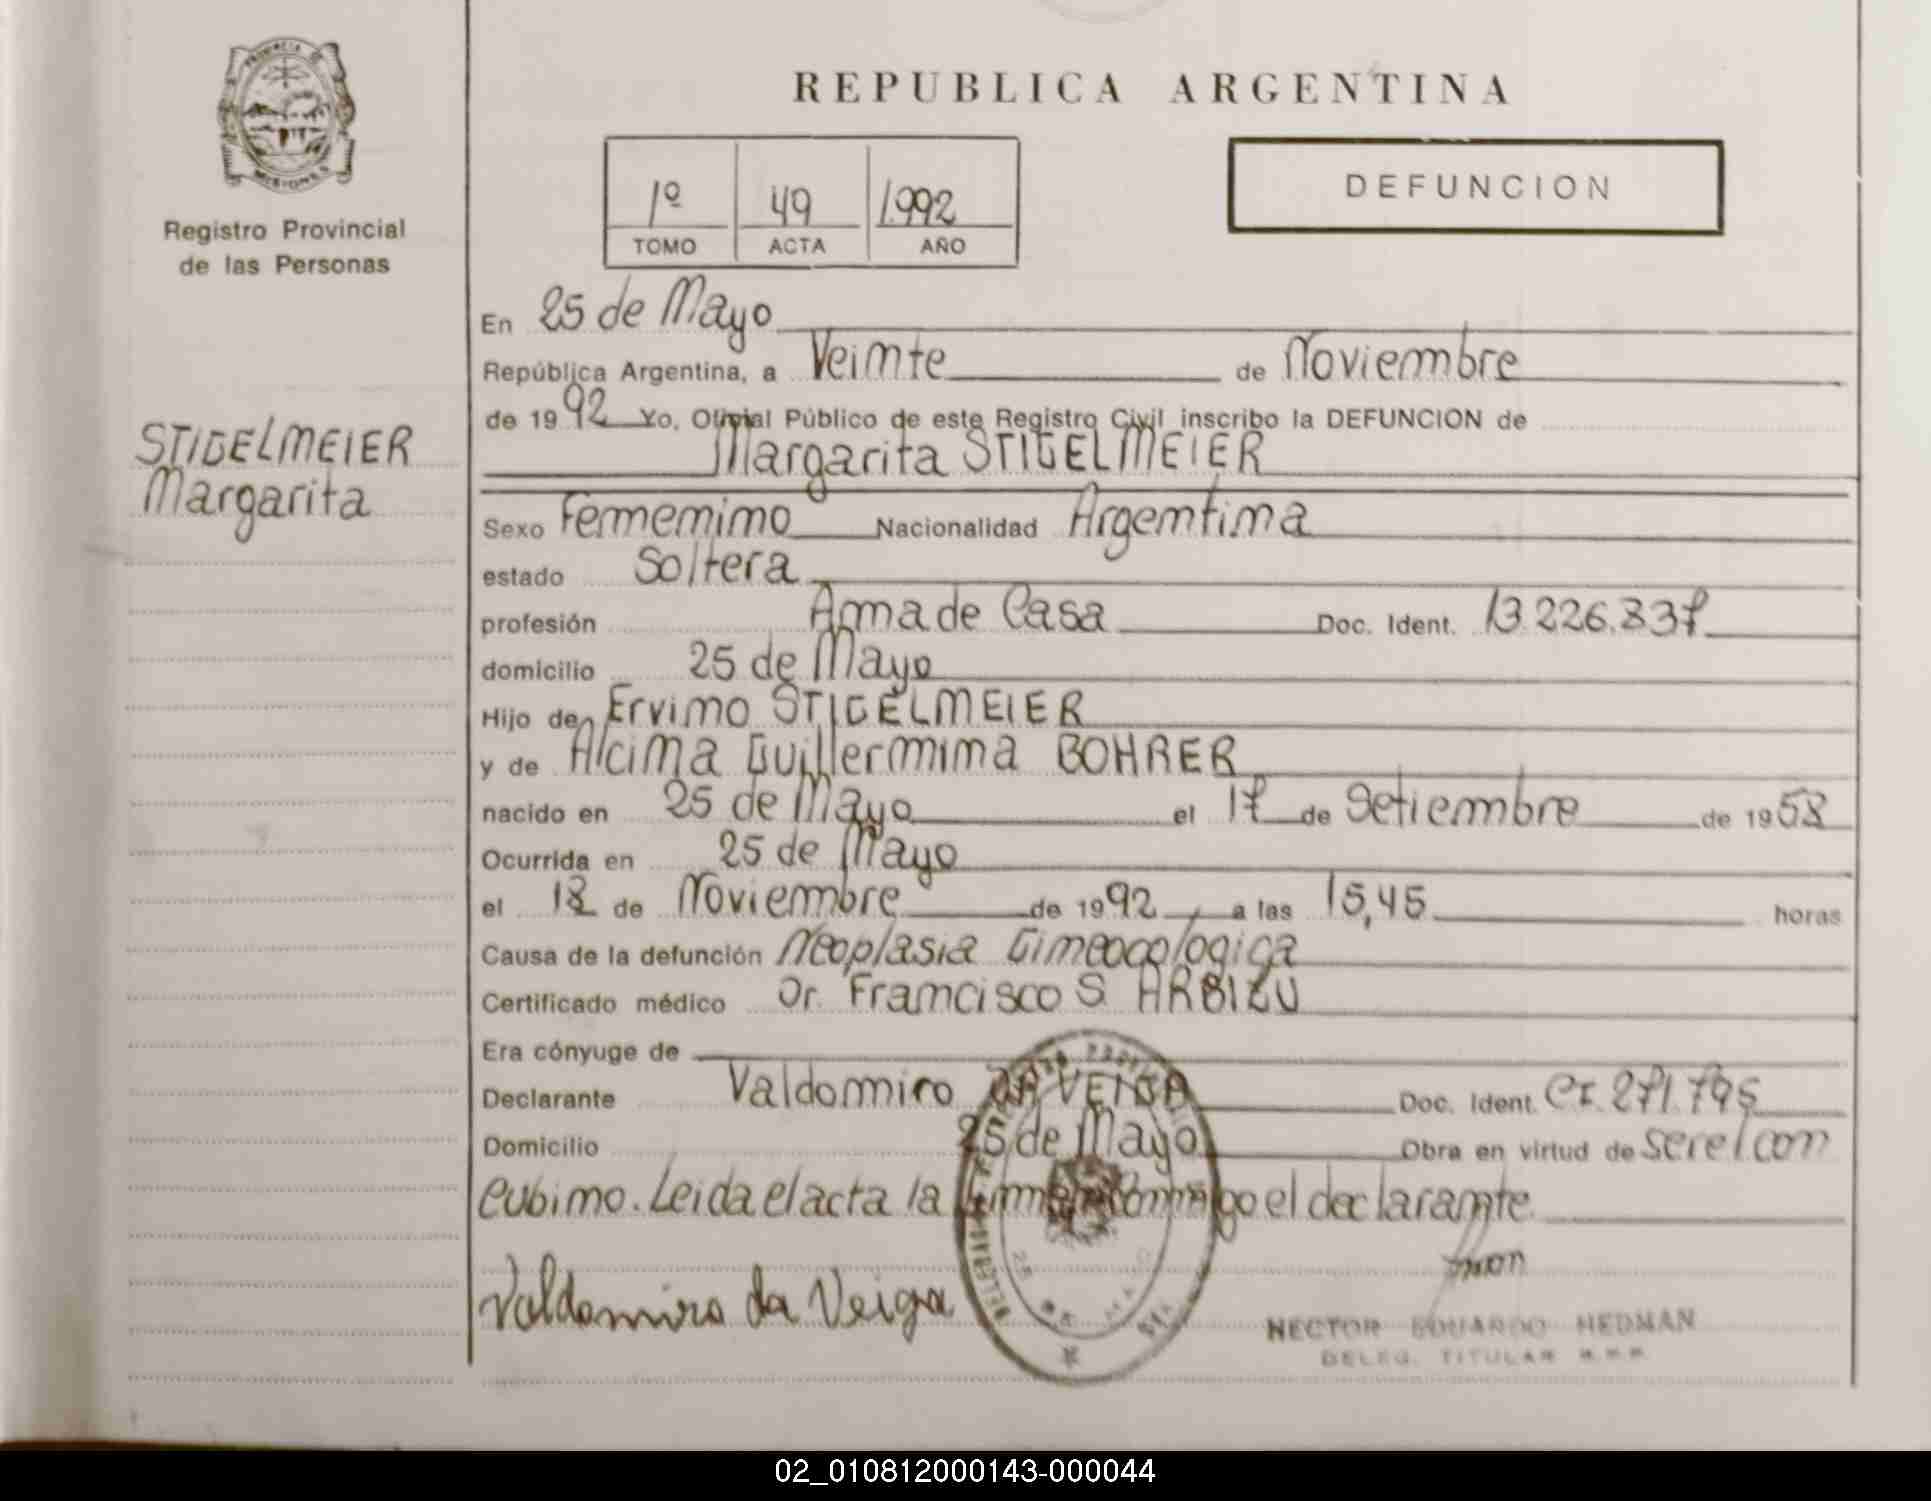 REPUBLICA ARGENTINA
PROVINCIA DE
MISIONES
Registro Provincial
de las Personas
1º 49 1.992
TOMO ACTA AÑO
DEFUNCION
En 25 de Mayo
República Argentina, a Veinte de Noviembre
de 19 92 Yo, Oficial Público de este Registro Civil inscribo la DEFUNCION de
STIGELMEIER
Margarita
Margarita STIGELMEIER
Sexo Femenino Nacionalidad Argentina
estado Soltera
profesión Ama de Casa Doc. Ident. 13.226.837
domicilio 25 de Mayo
Hijo de Ervino STIGELMEIER
y de Alcina Guillermina BOHRER
nacido en 25 de Mayo el 17 de Setiembre de 1958
Ocurrida en 25 de Mayo
el 18 de Noviembre de 1992, a las 15,45 horas
Causa de la defunción Neoplasia Gineocologica
Certificado médico Dr. Francisco S. ARBIZU
Era cónyuge de
Declarante Valdomiro DA VEIGA Doc. Ident. CI. 271.795
Domicilio 25 de Mayo Obra en virtud de ser el con
cubino. Leida el acta la firma conmigo el declarante.
Valdomiro da Veiga
25 DE MAYO
HECTOR EDUARDO HEDMAN
DELEG. TITULAR R.P.P.
02_010812000143-000044